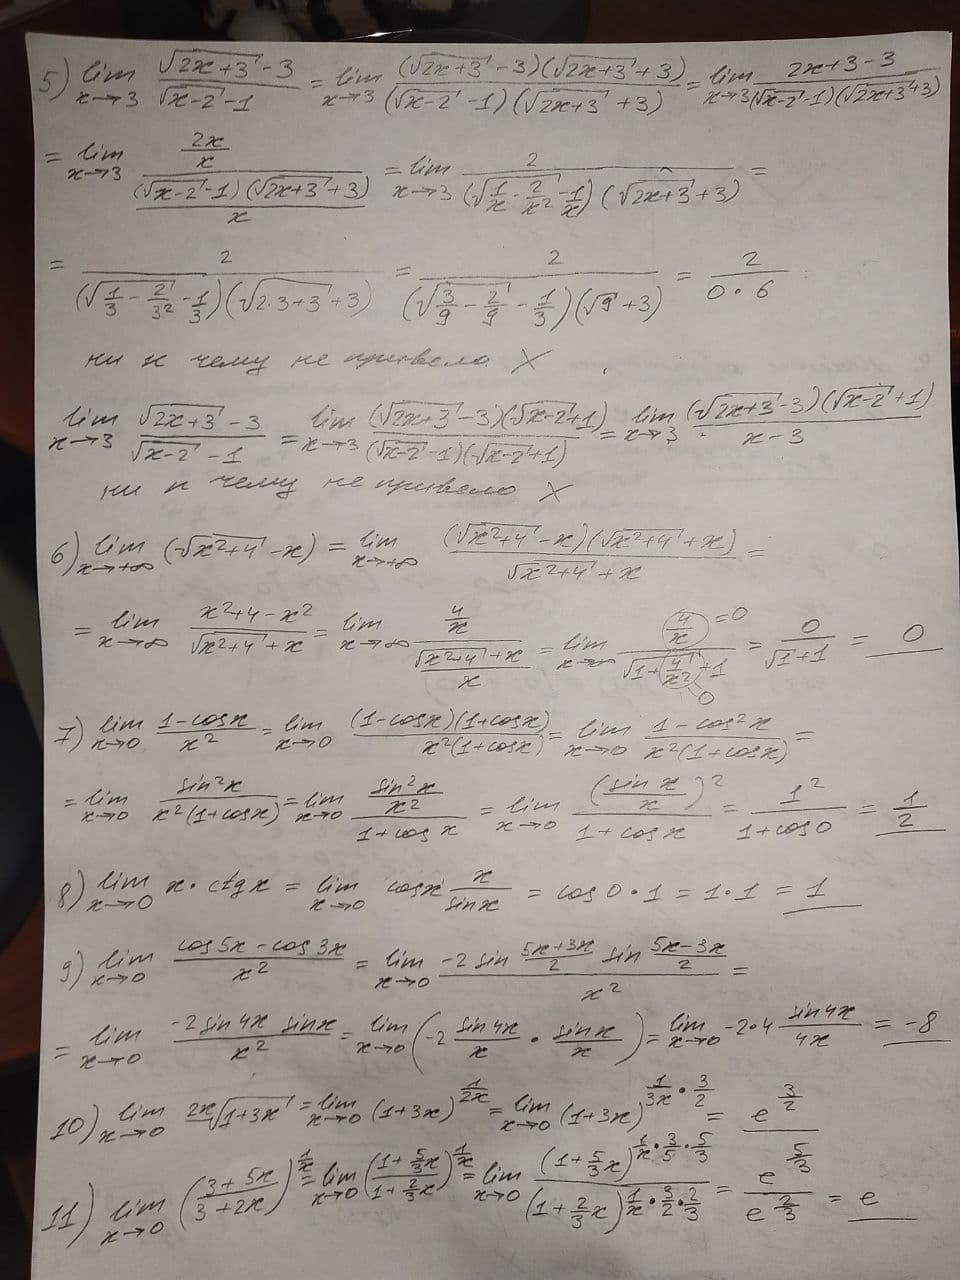 5) lim x→3 (√(2x+3) - 3)/(√(x-2) - 1) = lim x→3 ((√(2x+3) - 3)(√(2x+3) + 3))/((√(x-2) - 1)(√(2x+3) + 3)) = lim x→3 (2x+3-3)/((√(x-2) - 1)(√(2x+3) + 3))
= lim x→3 (2x/x)/(((√(x-2) - 1)(√(2x+3) + 3))/x) = lim x→3 2/((√(1/x - 2/x²) - 1/x)(√(2x+3) + 3)) =
= 2/((√(1/3 - 2/3²) - 1/3)(√(2·3+3) + 3)) = 2/((√(3/9 - 2/9) - 1/3)(√9 + 3)) = 2/(0·6)
ни к чему не привело X
lim x→3 (√(2x+3) - 3)/(√(x-2) - 1) = lim x→3 ((√(2x+3) - 3)(√(x-2) + 1))/((√(x-2) - 1)(√(x-2) + 1)) = lim x→3 ((√(2x+3) - 3)(√(x-2) + 1))/(x-3)
ни к чему не привело X
6) lim x→+∞ (√(x²+4) - x) = lim x→+∞ ((√(x²+4) - x)(√(x²+4) + x))/(√(x²+4) + x) =
= lim x→∞ (x²+4-x²)/(√(x²+4) + x) = lim x→+∞ (4/x)/((√(x²+4) + x)/x) = lim x→∞ (4/x)/(√(1 + 4/x²) + 1) = 0/(√1+1) = 0
=0
0
7) lim x→0 (1-cosx)/x² = lim x→0 ((1-cosx)(1+cosx))/(x²(1+cosx)) = lim x→0 (1-cos²x)/(x²(1+cosx)) =
= lim x→0 sin²x/(x²(1+cosx)) = lim x→0 (sin²x/x²)/(1+cosx) = lim x→0 (sin x/x)²/(1+cosx) = 1²/(1+cos0) = 1/2
8) lim x→0 x·ctgx = lim x→0 cosx x/sinx = cos0·1 = 1·1 = 1
9) lim x→0 (cos5x - cos3x)/x² = lim x→0 (-2 sin (5x+3x)/2 sin (5x-3x)/2)/x² =
= lim x→0 (-2 sin4x sinx)/x² = lim x→0 (-2 sin4x/x · sinx/x) = lim x→0 -2·4 sin4x/4x = -8
10) lim x→0 ²ˣ√(1+3x) = lim x→0 (1+3x)^(1/2x) = lim x→0 (1+3x)^(1/3x · 3/2) = e^(3/2)
11) lim x→0 ((3+5x)/(3+2x))^(1/x) = lim x→0 ((1+5/3x)/(1+2/3x))^(1/x) = lim x→0 (1+5/3x)^(1/x · 3/5 · 5/3)/(1+2/3x)^(1/x · 3/2 · 2/3) = e^(5/3)/e^(2/3) = e